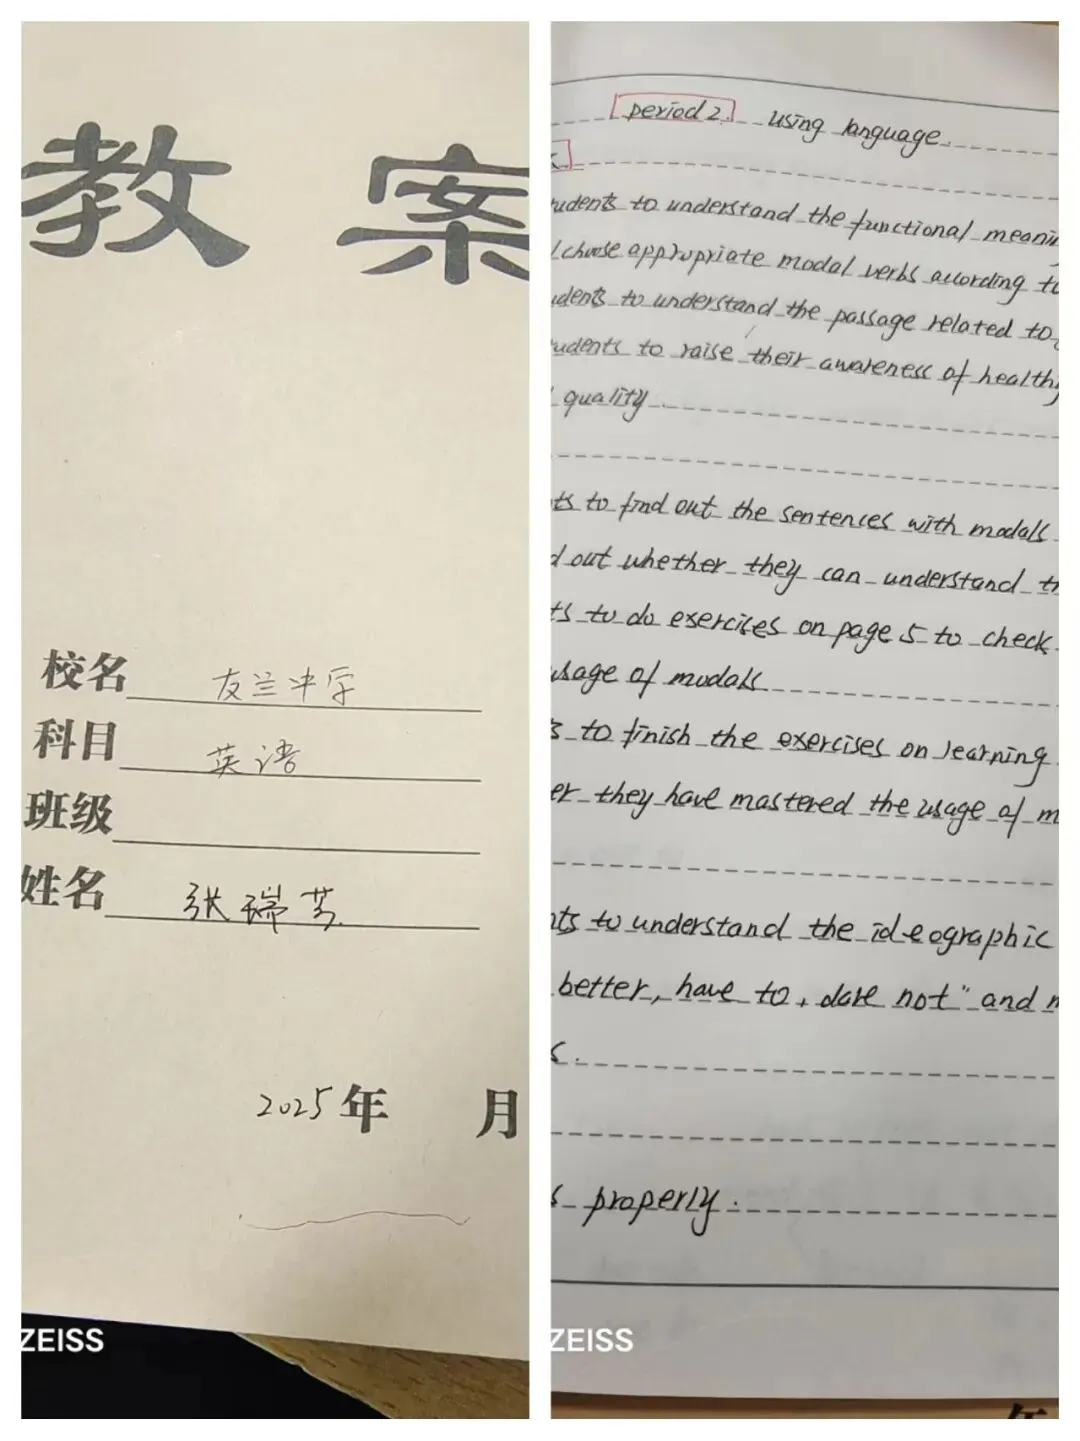 教案
校名 友兰中学
科目 英语
班级
姓名 张瑞芳
2025年 月
ZEISS
period 2. using language.
udents to understand the functional meanin
choose appropriate modal verbs according to
udents to understand the passage related to
udents to raise their awareness of healthy
quality
ts to find out the sentences with modals
d out whether they can understand th
ts to do exercises on page 5 to check
usage of modals
s to finish the exercises on learning
er they have mastered the usage of m
nts to understand the ideographic
better, have to, dare not" and n
s.
s properly.
ZEISS